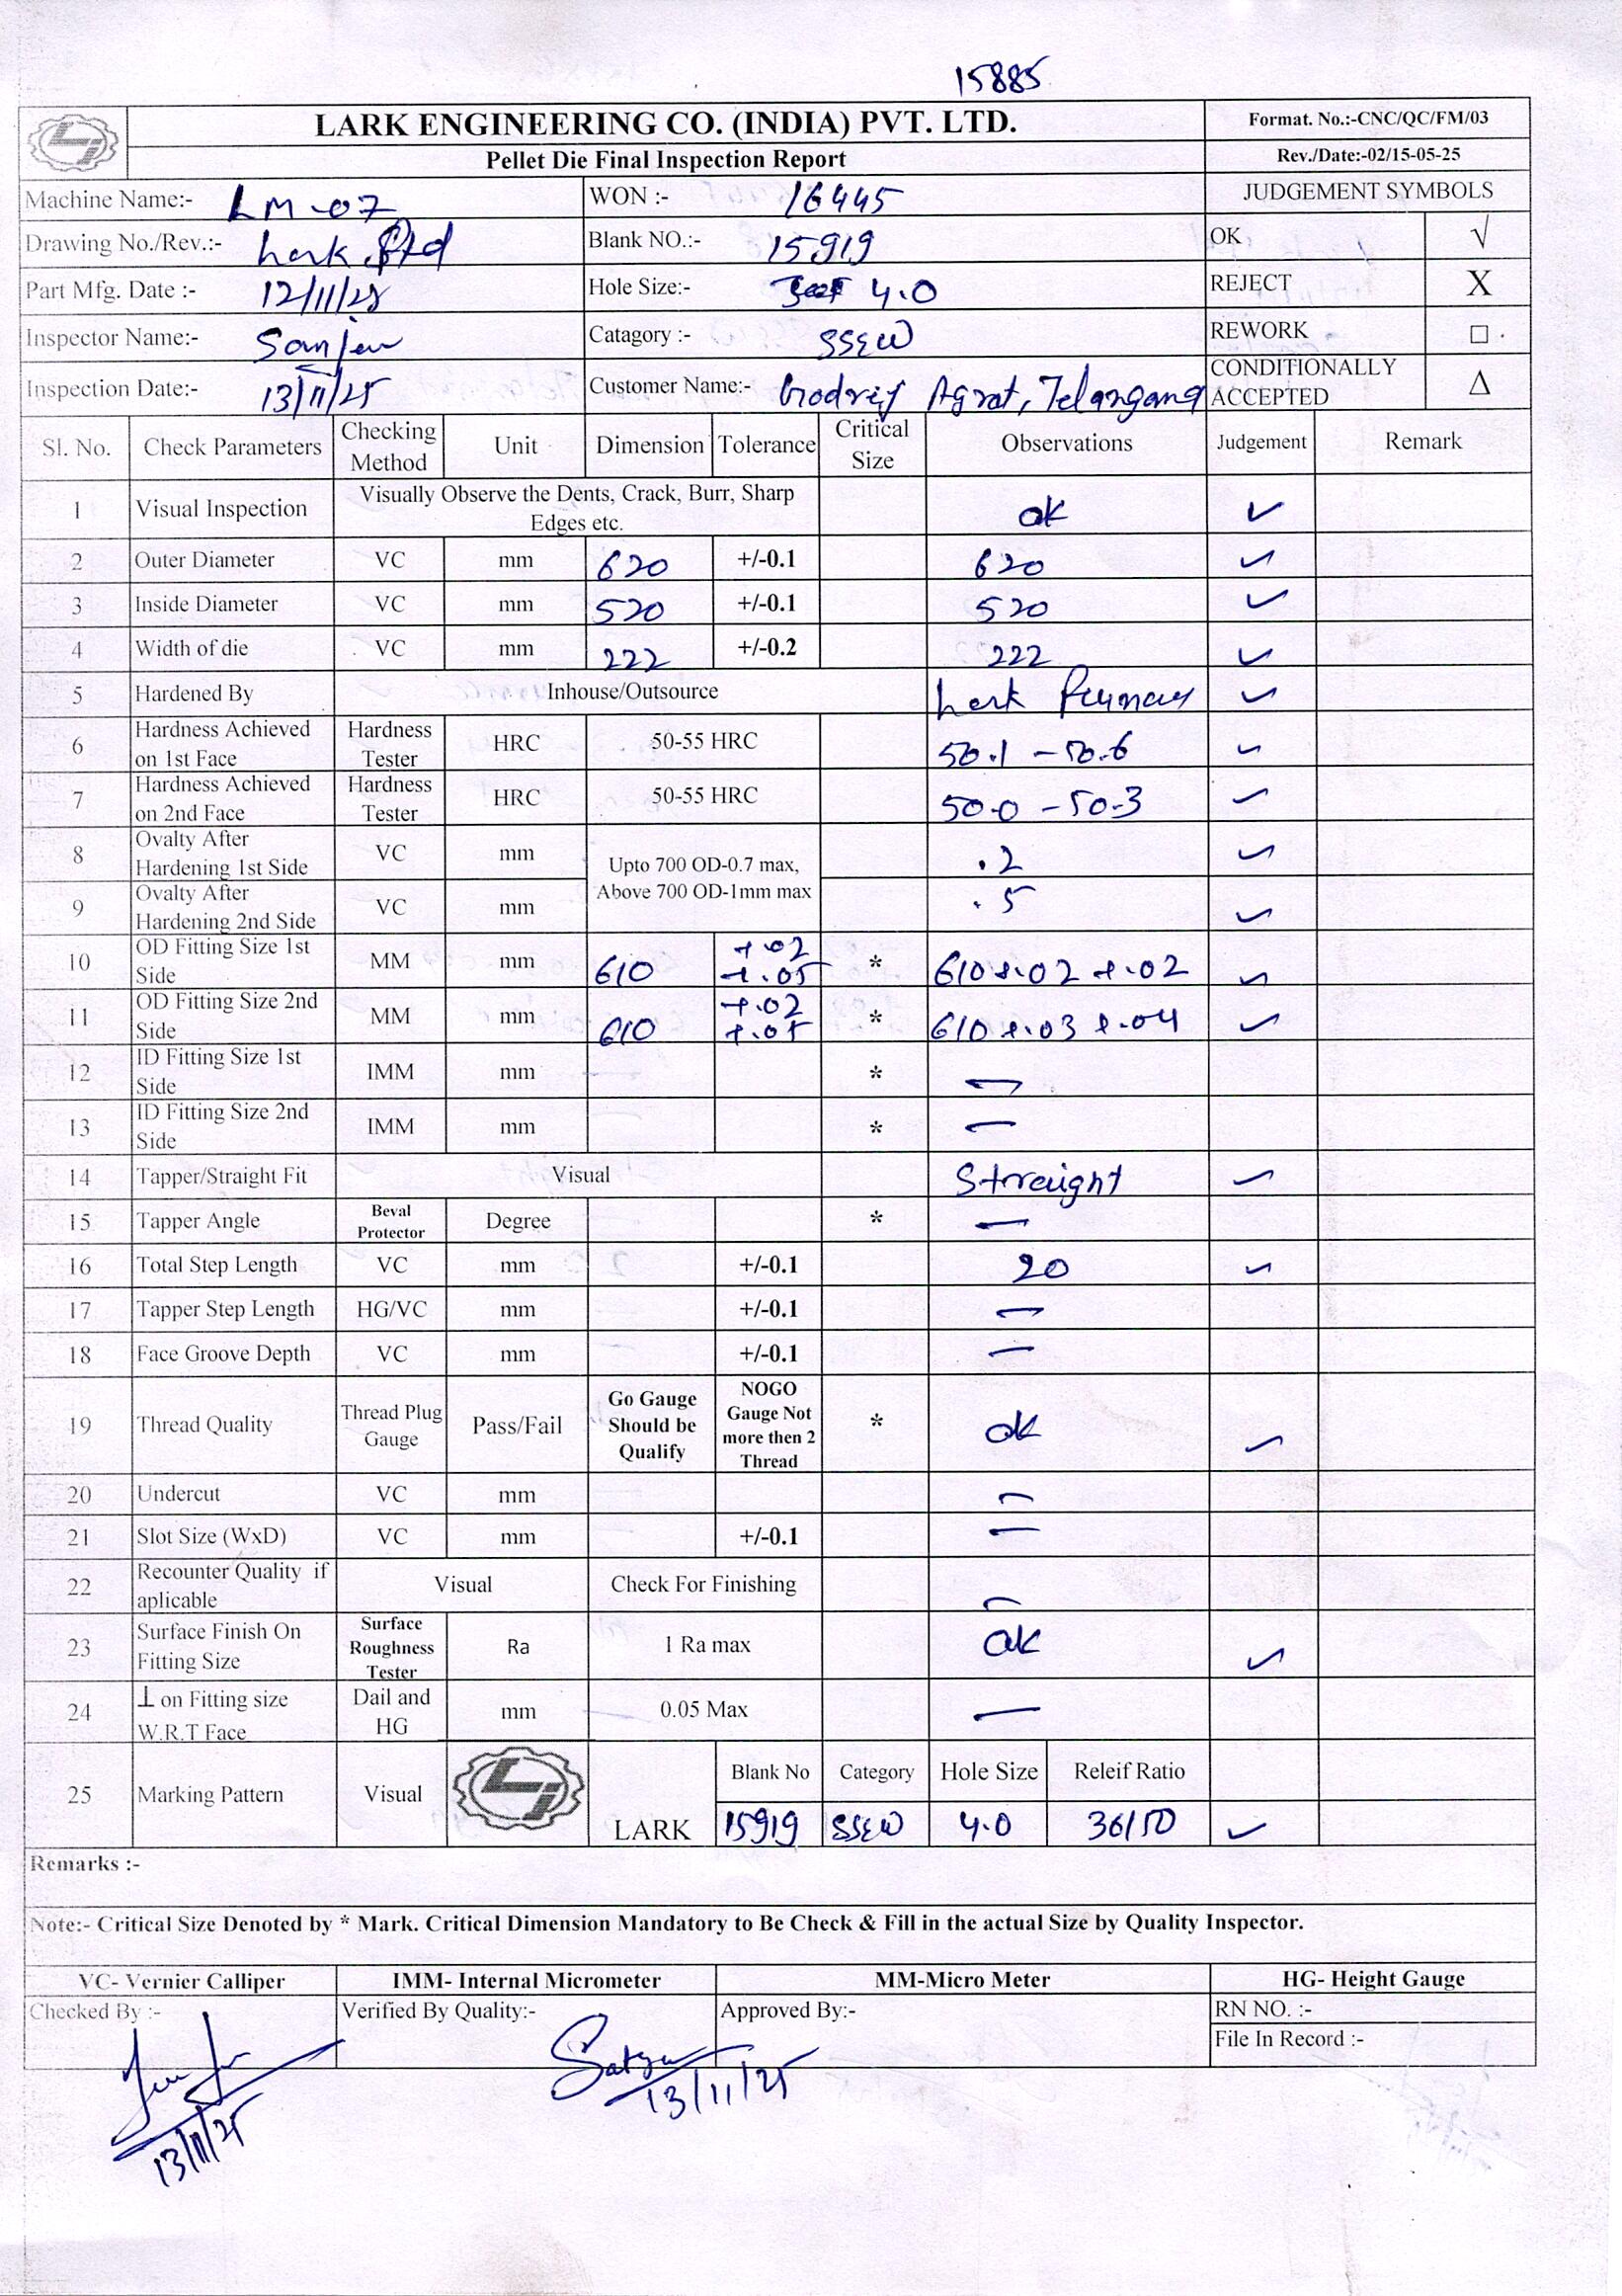 15885
LARK ENGINEERING CO. (INDIA) PVT. LTD.
Format. No.:-CNC/QC/FM/03
Pellet Die Final Inspection Report
Rev./Date:-02/15-05-25
Machine Name:- LM-07 WON :- 16445 JUDGEMENT SYMBOLS
Drawing No./Rev.:- Lark Std Blank NO.:- 15919 OK √
Part Mfg. Date :- 12/11/25 Hole Size:- 4.0 REJECT X
Inspector Name:- Sanjeev Catagory :- SSEW REWORK □
Inspection Date:- 13/11/25 Customer Name:- Godrej Agrat, Telangana CONDITIONALLY ACCEPTED Δ
Sl. No. Check Parameters Checking Method Unit Dimension Tolerance Critical Size Observations Judgement Remark
1 Visual Inspection Visually Observe the Dents, Crack, Burr, Sharp Edges etc. ok ✓
2 Outer Diameter VC mm 620 +/-0.1 620 ✓
3 Inside Diameter VC mm 520 +/-0.1 520 ✓
4 Width of die VC mm 222 +/-0.2 222 ✓
5 Hardened By Inhouse/Outsource Lark ✓
6 Hardness Achieved on 1st Face Hardness Tester HRC 50-55 HRC 50.1 - 50.6 ✓
7 Hardness Achieved on 2nd Face Hardness Tester HRC 50-55 HRC 50.0 - 50.3 ✓
8 Ovalty After Hardening 1st Side VC mm Upto 700 OD-0.7 max, Above 700 OD-1mm max .2 ✓
9 Ovalty After Hardening 2nd Side VC mm .5 ✓
10 OD Fitting Size 1st Side MM mm 610 +.02 +.05 * 610 +.02 +.02 ✓
11 OD Fitting Size 2nd Side MM mm 610 +.02 +.05 * 610 +.03 +.04 ✓
12 ID Fitting Size 1st Side IMM mm * —
13 ID Fitting Size 2nd Side IMM mm * —
14 Tapper/Straight Fit Visual Straight ✓
15 Tapper Angle Beval Protector Degree * —
16 Total Step Length VC mm +/-0.1 20 ✓
17 Tapper Step Length HG/VC mm +/-0.1 —
18 Face Groove Depth VC mm +/-0.1 —
19 Thread Quality Thread Plug Gauge Pass/Fail Go Gauge Should be Qualify NOGO Gauge Not more then 2 Thread * ok ✓
20 Undercut VC mm —
21 Slot Size (WxD) VC mm +/-0.1 —
22 Recounter Quality if aplicable Visual Check For Finishing —
23 Surface Finish On Fitting Size Surface Roughness Tester Ra 1 Ra max ok ✓
24 ⊥ on Fitting size W.R.T Face Dail and HG mm 0.05 Max —
25 Marking Pattern Visual LARK Blank No Category Hole Size Releif Ratio
15919 SSEW 4.0 36/50 ✓
Remarks :-
Note:- Critical Size Denoted by * Mark. Critical Dimension Mandatory to Be Check & Fill in the actual Size by Quality Inspector.
VC- Vernier Calliper IMM- Internal Micrometer MM-Micro Meter HG- Height Gauge
Checked By :- Verified By Quality:- Approved By:- RN NO. :-
File In Record :-
Satya
13/11/25
13/11/25